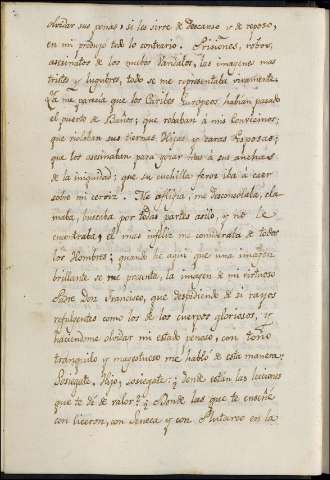 olvidar sus penas, si les sirve de descanso y de reposo,
en mi produjo todo lo contrario. Prisiones, robos,
asesinatos de los nuebos Vandalos, las imagenes mas
tristes y lugubres, todo se me representaba vivamente.
Ya me parecia que los Caribes Europeos habian pasado
el puerto de Baños; que robaban á mis convecinos;
que violaban sus tiernas Hijas, y caras Esposas;
que los asesinaban para gozar mas á sus anchuras
de la iniquidad; que su cuchilla feroz iba á caer
sobre mi cerviz. Me afligia, me desconsolaba, cla-
maba, buscaba por todas partes asilo, y no le
encontraba; el mas infeliz me consideraba de todos
los Hombres; quando he aqui que una
brillante se me presenta, la imagen de mi virtuoso
Padre Don Francisco, que despidiendo de si rayos
refulgentes como los de los cuerpos gloriosos, y
haciendome olvidar mi estado penoso, con tono
tranquilo y magestuoso me habló de esta manera:
Sosiegate, Hijo, sosiegate: ¿donde están las lecciones
que te dí de valor? ¿Donde las que te enseñé
con Ciceron, con Seneca y con Plutarco en la